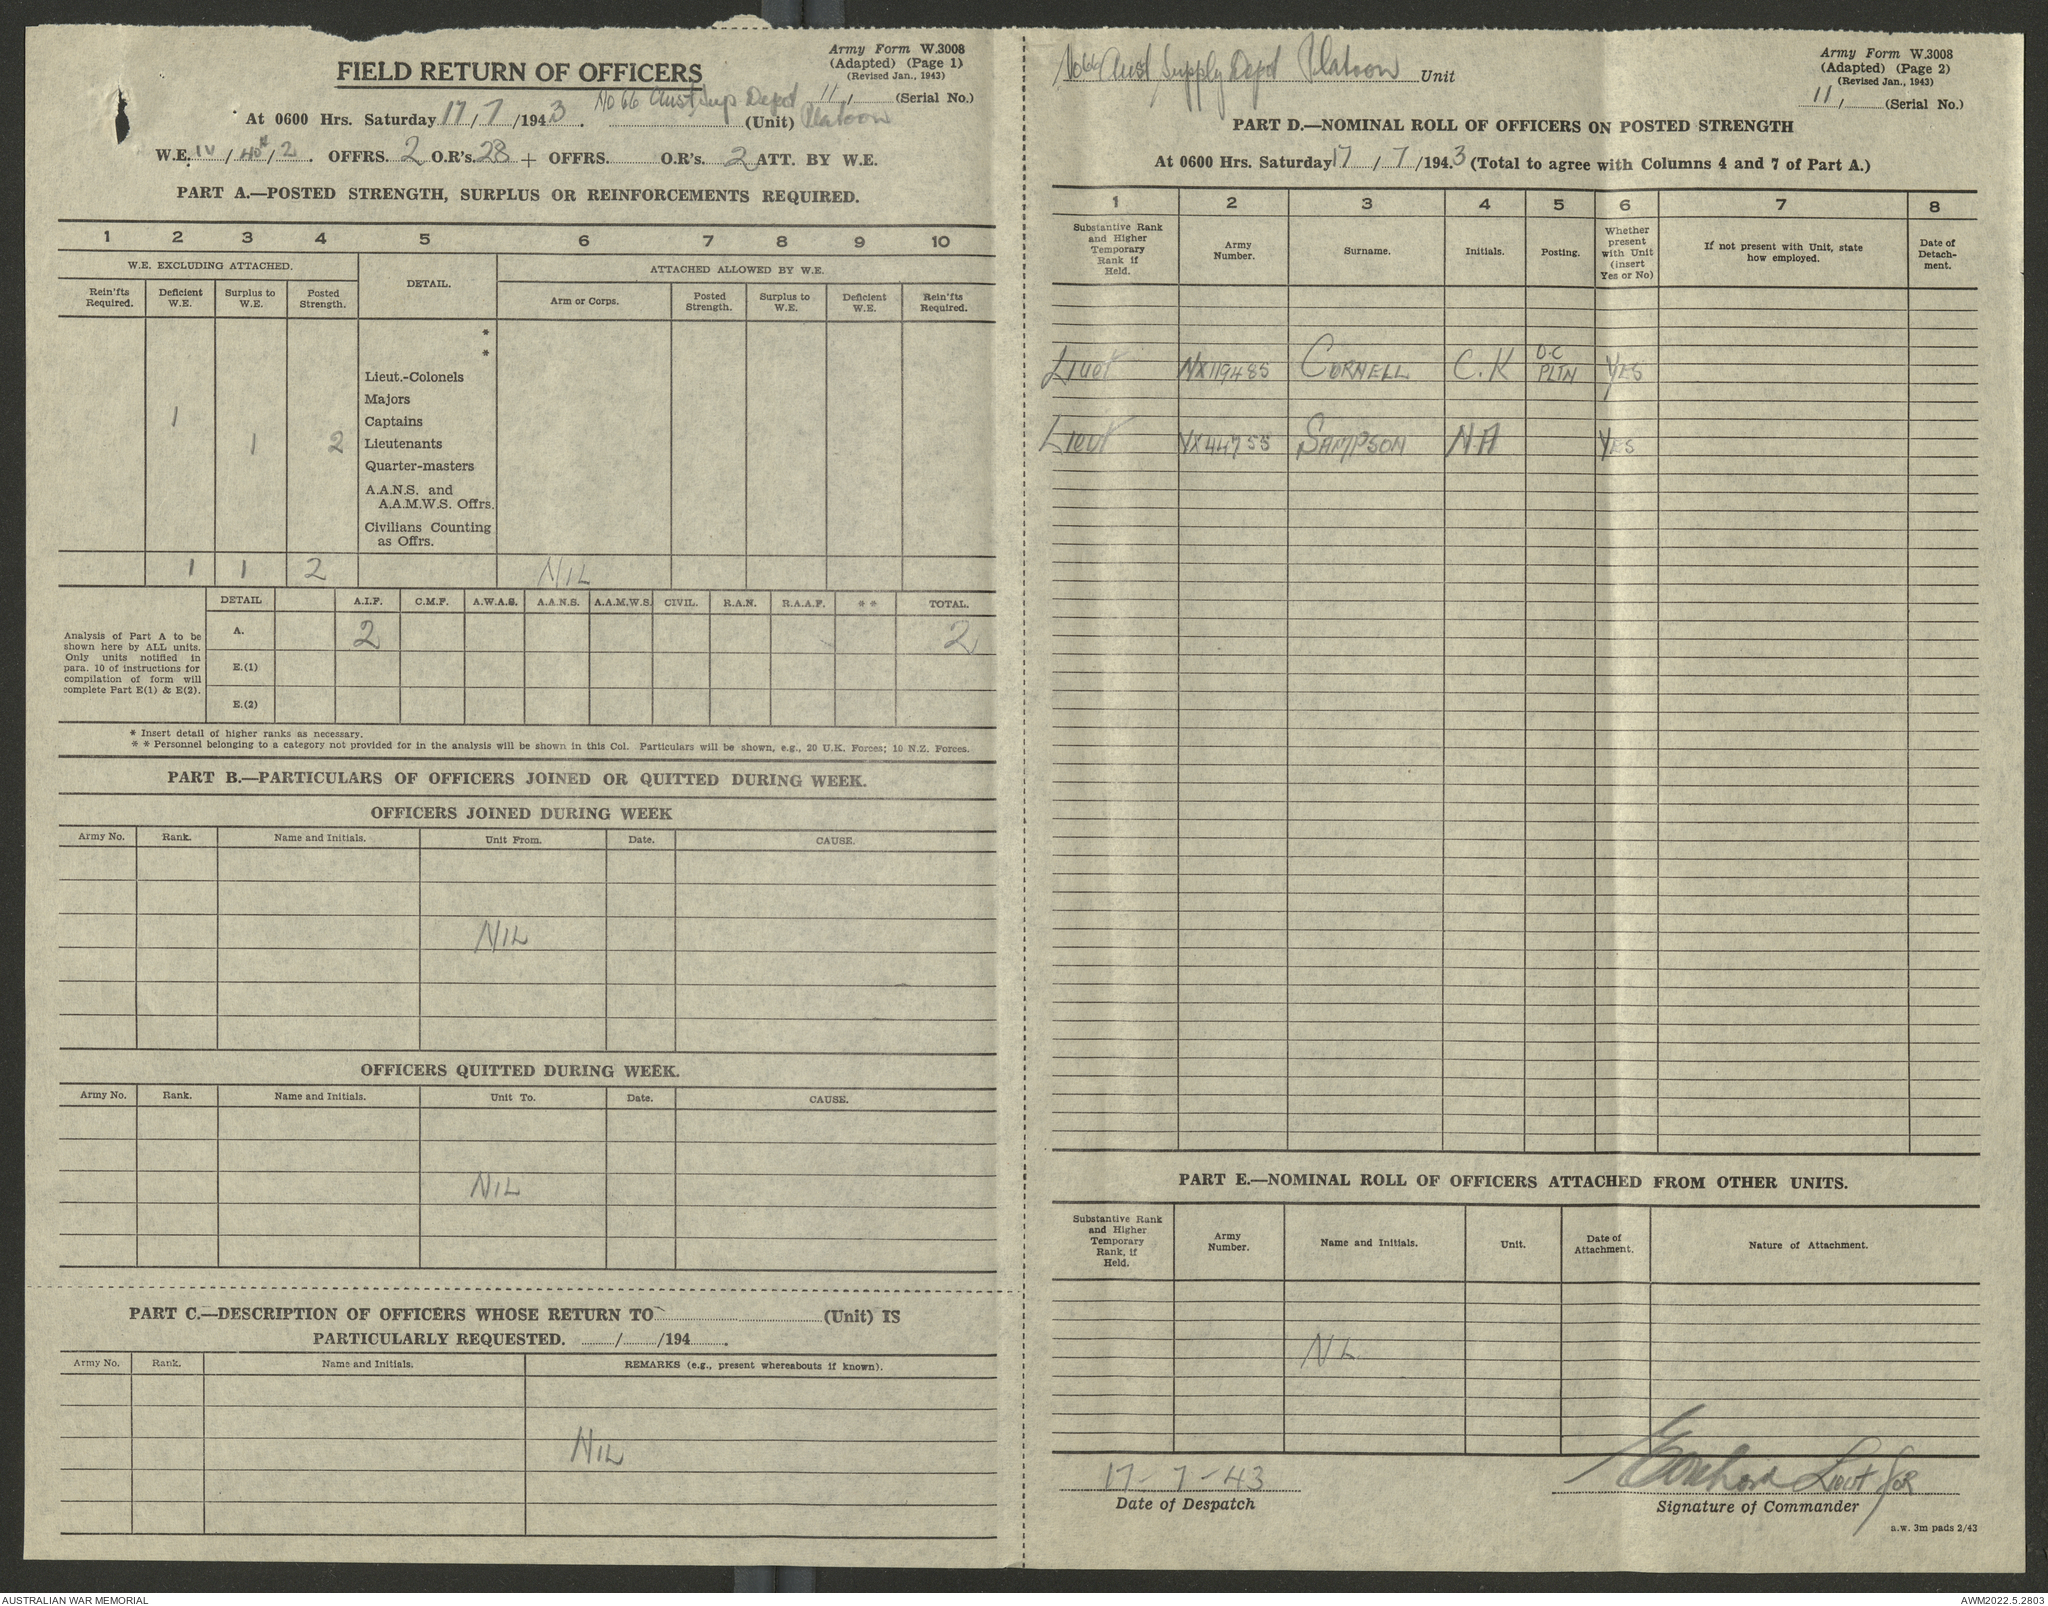 Army Form W.3008
(Adapted) (Page 1)
(Revised Jan., 1943)
FIELD RETURN OF OFFICERS
11, (Serial No.)
At 0600 Hrs. Saturday 17/7/1943. No 66 Aust Sup Depot (Unit) Platoon
W.E. IV/40*/2. OFFRS. 2 O.R's. 28 + OFFRS. O.R's. 2 ATT. BY W.E.
PART A.—POSTED STRENGTH, SURPLUS OR REINFORCEMENTS REQUIRED.
1 2 3 4 5 6 7 8 9 10
W.E. EXCLUDING ATTACHED. DETAIL. ATTACHED ALLOWED BY W.E.
Rein'fts Required. Deficient W.E. Surplus to W.E. Posted Strength. Arm or Corps. Posted Strength. Surplus to W.E. Deficient W.E. Rein'fts Required.
*
*
Lieut.-Colonels
Majors
1 Captains
1 2 Lieutenants
Quarter-masters
A.A.N.S. and
A.A.M.W.S. Offrs.
Civilians Counting
as Offrs.
1 1 2 NIL
DETAIL A.I.F. C.M.F. A.W.A.S. A.A.N.S. A.A.M.W.S. CIVIL. R.A.N. R.A.A.F. * * TOTAL.
Analysis of Part A to be
shown here by ALL units.
Only units notified in
para. 10 of instructions for
compilation of form will
complete Part E(1) & E(2).
A. 2 2
E.(1)
E.(2)
* Insert detail of higher ranks as necessary.
* * Personnel belonging to a category not provided for in the analysis will be shown in this Col. Particulars will be shown, e.g., 20 U.K. Forces; 10 N.Z. Forces.
PART B.—PARTICULARS OF OFFICERS JOINED OR QUITTED DURING WEEK.
OFFICERS JOINED DURING WEEK
Army No. Rank. Name and Initials. Unit From. Date. CAUSE.
NIL
OFFICERS QUITTED DURING WEEK.
Army No. Rank. Name and Initials. Unit To. Date. CAUSE.
NIL
PART C.—DESCRIPTION OF OFFICERS WHOSE RETURN TO (Unit) IS
PARTICULARLY REQUESTED. / /194 .
Army No. Rank. Name and Initials. REMARKS (e.g., present whereabouts if known).
NIL
No 66 Aust Supply Depot Platoon Unit
Army Form W.3008
(Adapted) (Page 2)
(Revised Jan., 1943)
11, (Serial No.)
PART D.—NOMINAL ROLL OF OFFICERS ON POSTED STRENGTH
At 0600 Hrs. Saturday 17/7/1943 (Total to agree with Columns 4 and 7 of Part A.)
1 2 3 4 5 6 7 8
Substantive Rank and Higher Temporary Rank if Held. Army Number. Surname. Initials. Posting. Whether present with Unit (insert Yes or No) If not present with Unit, state how employed. Date of Detach-ment.
Lieut NX119485 CORNELL C.K O.C PLTN YES
Lieut VX44755 SAMPSON N.A YES
PART E.—NOMINAL ROLL OF OFFICERS ATTACHED FROM OTHER UNITS.
Substantive Rank and Higher Temporary Rank, if Held. Army Number. Name and Initials. Unit. Date of Attachment. Nature of Attachment.
NIL
17-7-43 Lieut for
Date of Despatch Signature of Commander
a.w. 3m pads 2/43
AUSTRALIAN WAR MEMORIAL AWM2022.5.2803